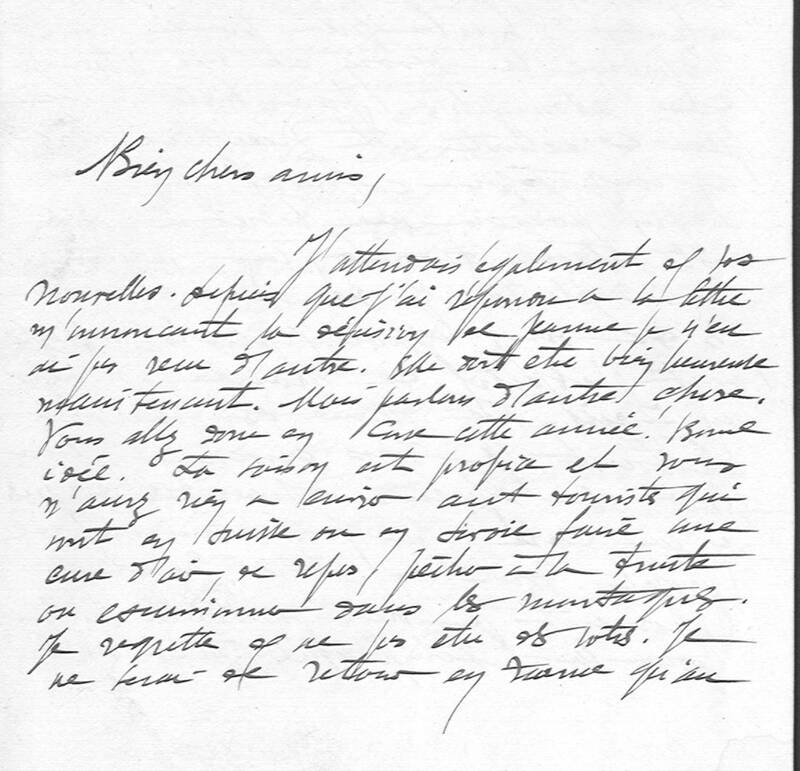 Bien chers amis,
J'attendais également de vos
nouvelles. depuis que j'ai répondu à la lettre
m'annonçant la décision de Jeanne je n'en
ai pas reçu d'autre. Elle doit être bien heureuse
maintenant. Mais parlons d'autre chose.
Vous allez donc en cure cette année. Bonne
idée. La saison est propice et vous
n'aurez rien à envier aux touristes qui
vont en Suisse ou en Savoie faire une
cure d'air, de repos, pêcher à la truite
ou excursionner dans les montagnes.
Je regrette de ne pas être des vôtres. Je
ne serai de retour en France qu'au